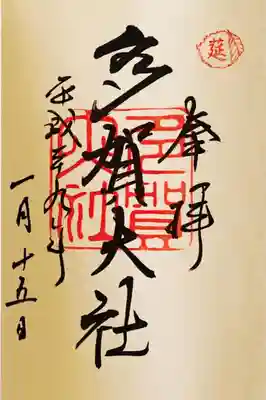 奉拝
多賀大社
平成二十九年
一月十五日
莚
多賀大社